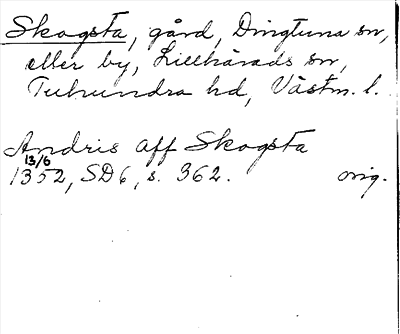 Skogsta, gård, Dingtuna sn,
eller by, Lillhärads sn,
Tuhundra hd, Västm. l.
Andris aff Skogsta
13/6
1352, SD6, s. 362. orig.